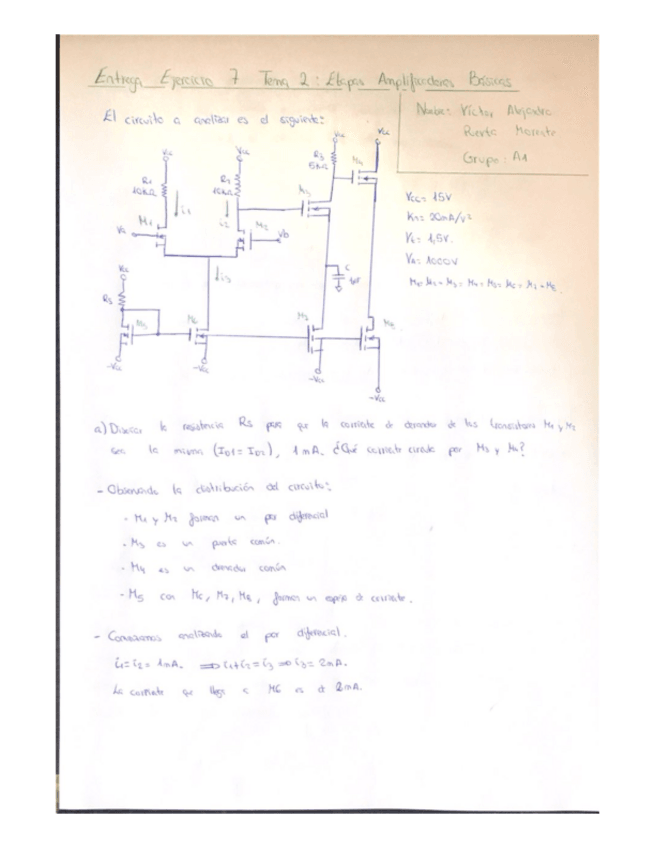 Entrega Ejercicio 7 Tema 2: Etapas Amplificadoras Básicas
Nombre: Víctor Alejandro
Grupo: A1
El circuito a analizar es el siguiente:
Vcc
Vcc
Vcc
Vcc
R1
10KΩ
R2
10KΩ
R3
5KΩ
M4
M3
i1
i2
M1
M2
Va
Vb
Vcc
R5
i3
C
M5
M6
M7
M8
-Vcc
-Vcc
-Vcc
-Vcc
Vcc= 15V
K= 20mA/V²
Vt= 1,5V.
VA= 1000V
M1= M2= M3= M4= M5= M6= M7= M8.
a) Diseñar la resistencia R5 para que la corriente de drenador de los transistores M1 y M2
sea la misma (ID1= ID2), 1 mA. ¿Qué corriente circula por M3 y M4?
- Observando la distribución del circuito:
· M1 y M2 forman un par diferencial
· M3 es un puerta común.
· M4 es un drenador común
· M5 con M6, M7, M8, forman un espejo de corriente.
- Comenzamos analizando el par diferencial.
i1= i2= 1mA. ⟹ i1+i2= i3 ⟹ i3= 2mA.
La corriente que llega a M6 es de 2mA.